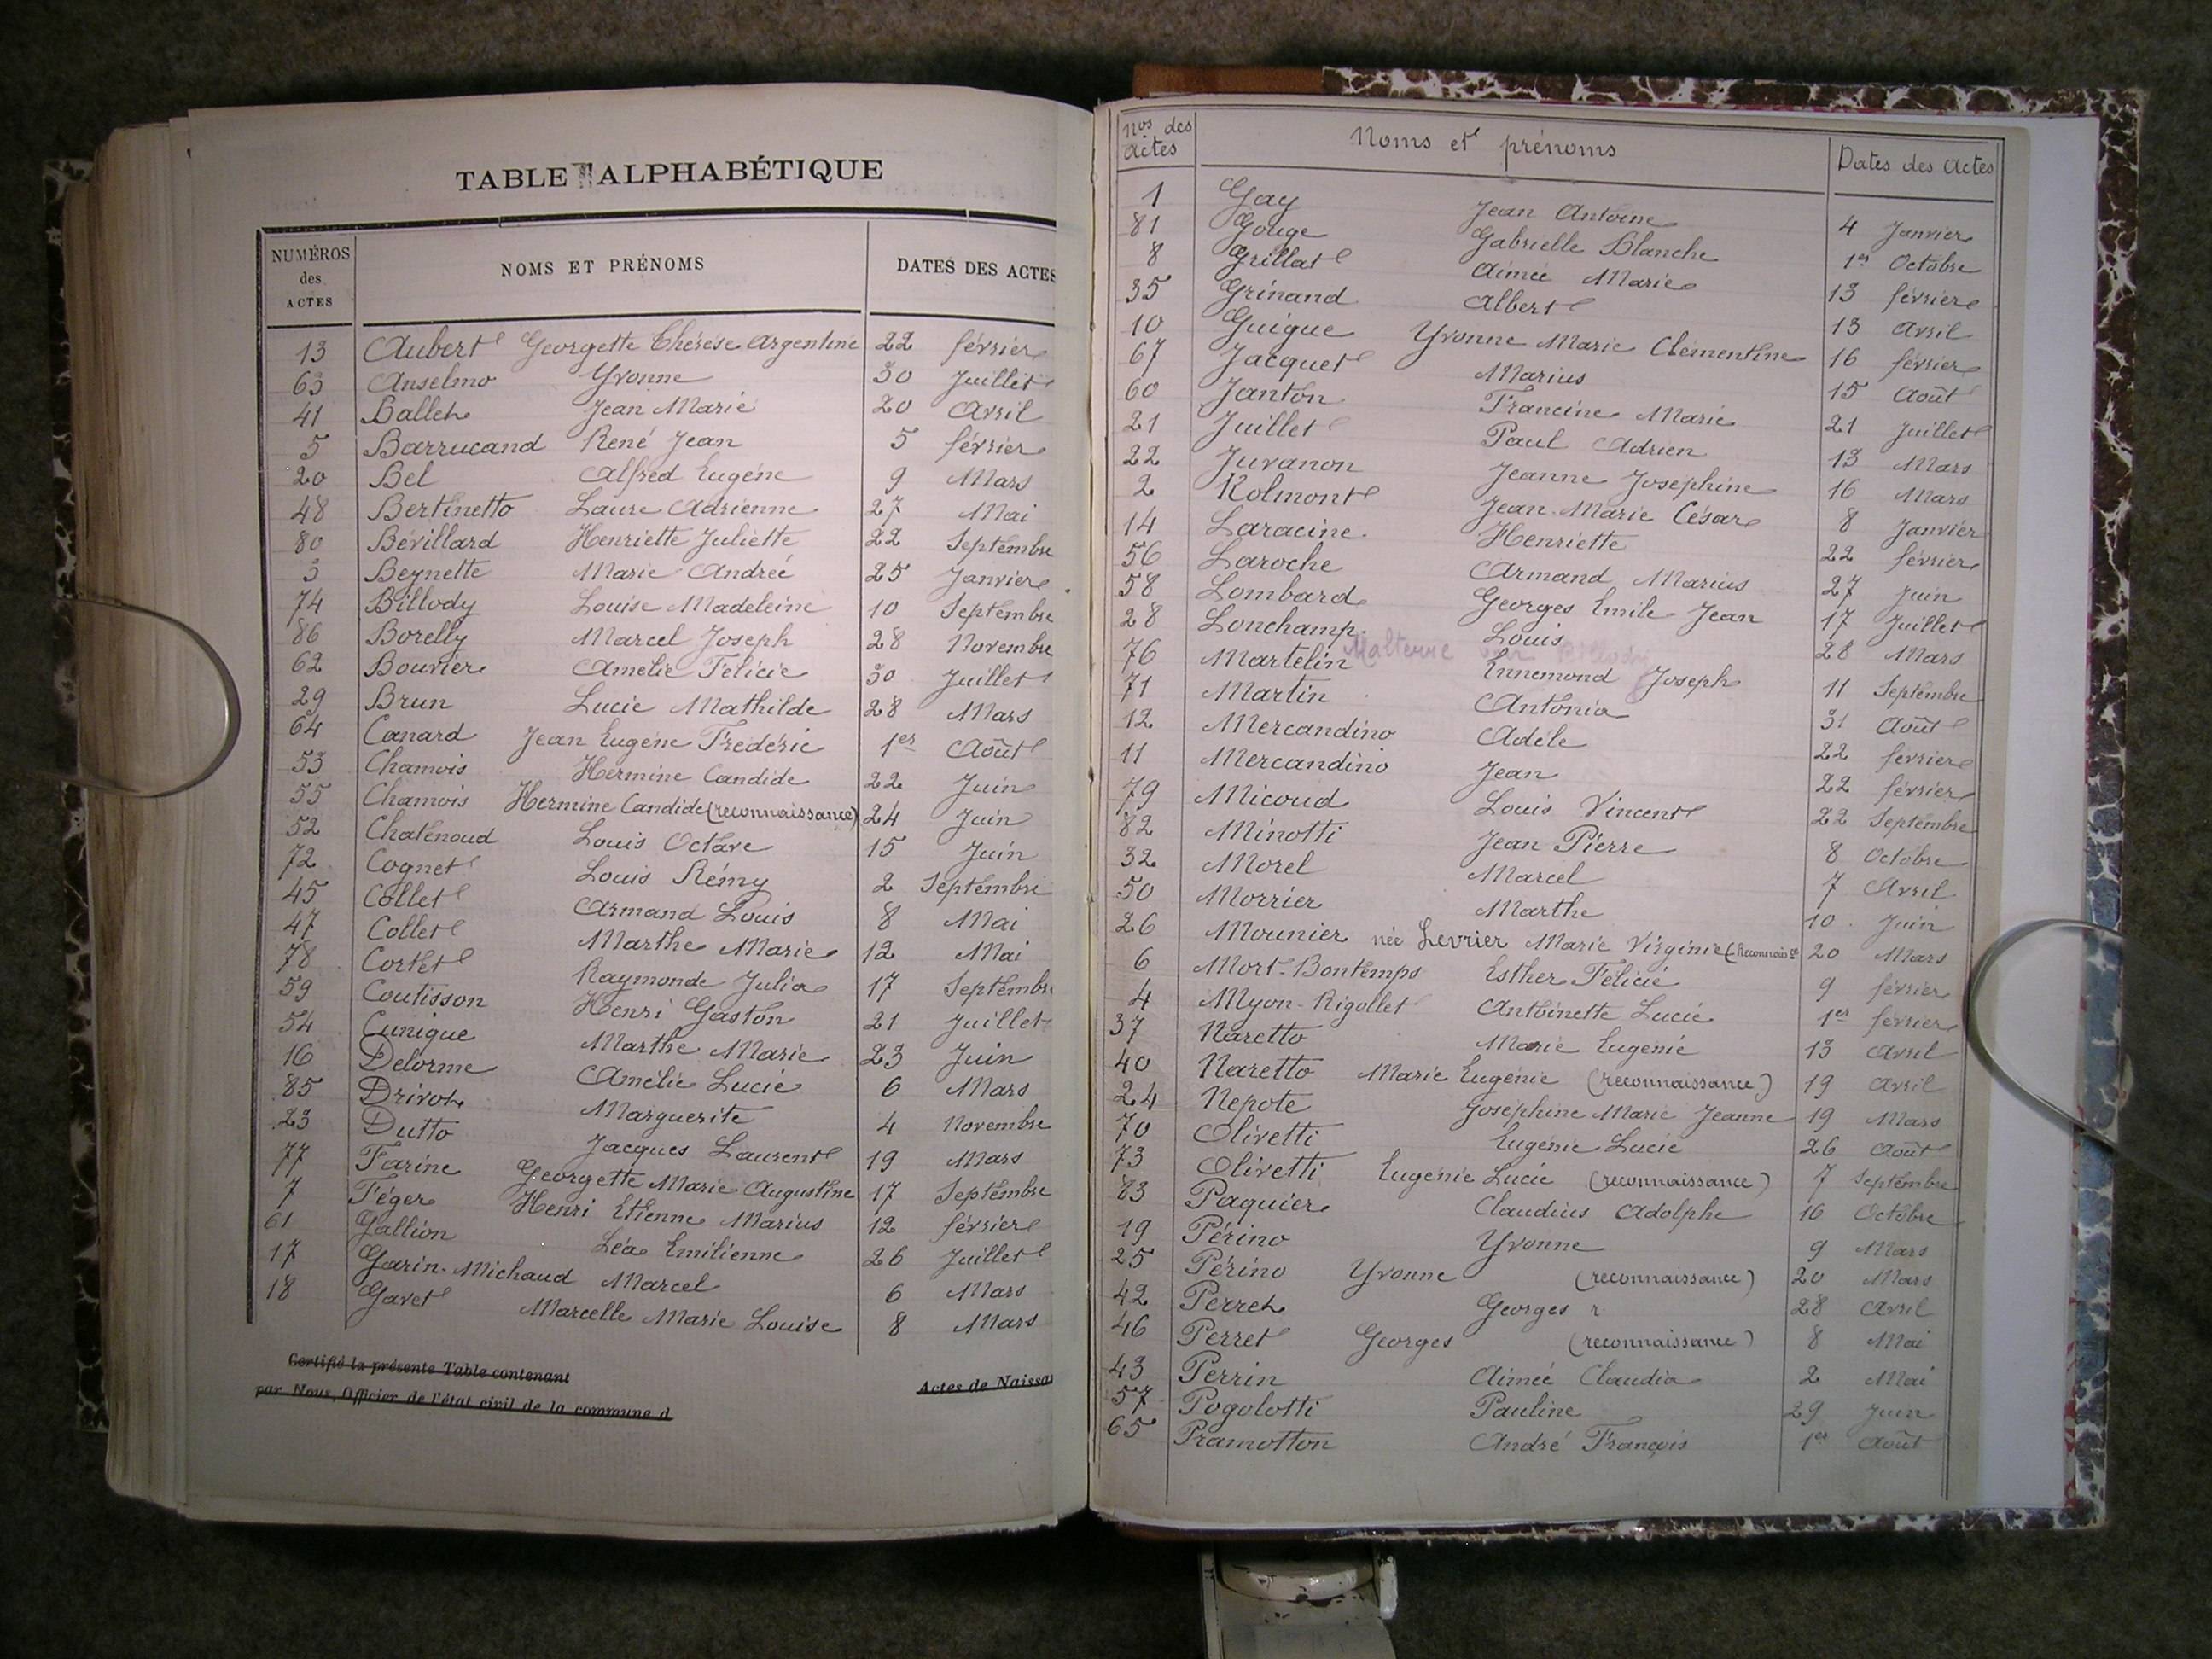 TABLE ALPHABÉTIQUE
NUMÉROS des ACTES NOMS ET PRÉNOMS DATES DES ACTES
13 Aubert Georgette Thérèse Argentine 22 février
63 Anselmo Yvonne 30 Juillet
41 Ballet Jean Marie 20 Avril
5 Barrucand René Jean 5 février
20 Bel Alfred Eugène 9 Mars
48 Bertinetto Laure Adrienne 27 Mai
80 Bévillard Henriette Juliette 22 Septembre
3 Beynette Marie Andrée 25 Janvier
74 Billody Louise Madeleine 10 Septembre
86 Borelly Marcel Joseph 28 Novembre
62 Bouvier Amélie Félicie 30 Juillet
29 Brun Lucie Mathilde 28 Mars
64 Canard Jean Eugène Frédéric 1er Août
53 Chamois Hermine Candide 22 Juin
55 Chamois Hermine Candide (reconnaissance) 24 Juin
52 Chatenoud Louis Octave 15 Juin
72 Cognet Louis Rémy 2 Septembre
45 Collet Armand Louis 8 Mai
47 Collet Marthe Marie 12 Mai
78 Cortet Raymonde Julia 17 Septembre
59 Coutisson Henri Gaston 21 Juillet
54 Cunique Marthe Marie 23 Juin
16 Delorme Amélie Lucie 6 Mars
85 Drivet Marguerite 4 Novembre
23 Dutto Jacques Laurent 19 Mars
77 Farine Georgette Marie Augustine 17 Septembre
7 Féger Henri Etienne Marius 12 février
61 Gallion Léa Emilienne 26 Juillet
17 Garin-Michaud Marcel 6 Mars
18 Gavet Marcelle Marie Louise 8 Mars
Certifié la présente Table contenant Actes de Naissa
par Nous, Officier de l'état civil de la commune d
Nos des Actes Noms et prénoms Dates des Actes
1 Gay Jean Antoine 4 Janvier
81 Gouge Gabrielle Blanche 1er Octobre
8 Grillat Aimée Marie 13 février
35 Grinand Albert 13 Avril
10 Guigue Yvonne Marie Clémentine 16 février
67 Jacquet Marius 15 Août
60 Janton Francine Marie 21 Juillet
21 Juillet Paul Adrien 13 Mars
22 Juvanon Jeanne Josephine 16 Mars
2 Kolmont Jean-Marie César 8 Janvier
14 Laracine Henriette 22 février
56 Laroche Armand Marius 27 Juin
58 Lombard Georges Emile Jean 17 Juillet
28 Lonchamp Louis 28 Mars
Malterre
76 Martelin Ennemond Joseph 11 Septembre
71 Martin Antonia 31 Août
12 Mercandino Adèle 22 février
11 Mercandino Jean 22 février
79 Micoud Louis Vincent 22 Septembre
82 Minotti Jean Pierre 8 Octobre
32 Morel Marcel 7 Avril
50 Morrier Marthe 10 Juin
26 Mounier née Levrier Marie Virginie (Reconnaisce 20 Mars
6 Mort-Bontemps Esther Félicie 9 février
4 Myon-Rigollet Antoinette Lucie 1er février
37 Naretto Marie Eugénie 13 Avril
40 Naretto Marie Eugénie (reconnaissance) 19 Avril
24 Nepote Joséphine Marie Jeanne 19 Mars
70 Olivetti Eugénie Lucie 26 Août
73 Olivetti Eugénie Lucie (reconnaissance) 7 Septembre
83 Paquier Claudius Adolphe 16 Octobre
19 Périno Yvonne 9 Mars
25 Périno Yvonne (reconnaissance) 20 Mars
42 Perret Georges 28 Avril
46 Perret Georges (reconnaissance) 8 Mai
43 Perrin Aimée Claudia 2 Mai
57 Pogolotti Pauline 29 Juin
65 Pramotton André François 1er Août